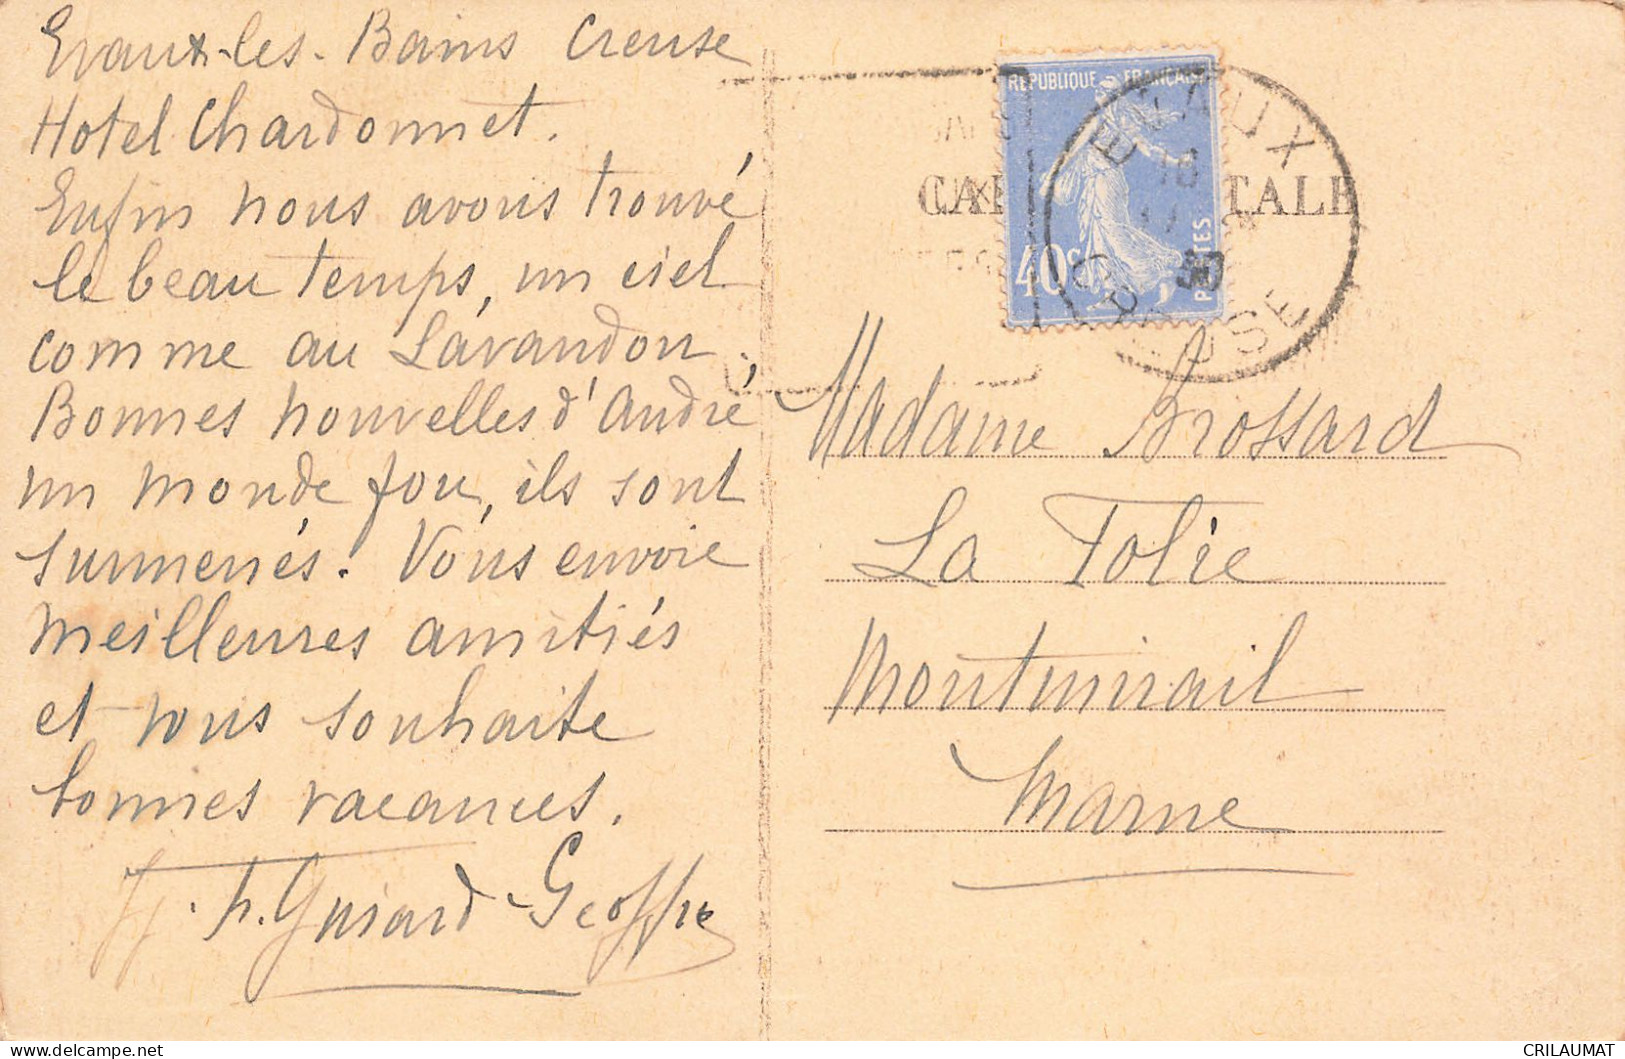 Evaux-les-Bains Creuse
Hotel Chardonnet.
Enfin nous avons trouvé
le beau temps, un ciel
comme au Lavandou.
Bonnes nouvelles d'André
un monde fou, ils sont
surmenés. Vous envoie
meilleures amitiés
et vous souhaite
bonnes vacances.
Guiard-Geoffre
REPUBLIQUE FRANÇAISE
40c
POSTES
EVAUX
18
30
CREUSE
CARTE POSTALE
Madame Brossard
La Folie
Montmirail
Marne
CRILAUMAT